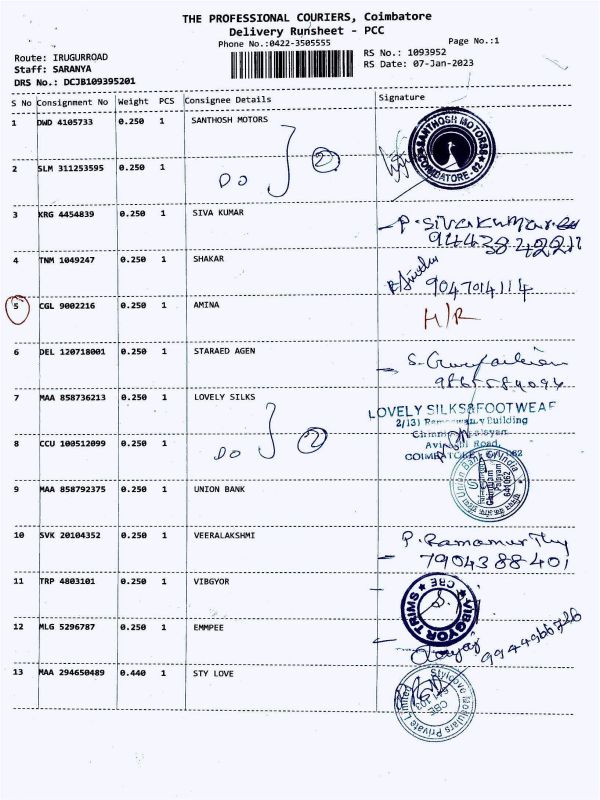 THE PROFESSIONAL COURIERS, Coimbatore
Delivery Runsheet - PCC
Phone No.:0422-3505555 Page No.:1
Route: IRUGURROAD RS No.: 1093952
Staff: SARANYA RS Date: 07-Jan-2023
DRS No.: DCJB109395201
S No Consignment No Weight PCS Consignee Details Signature
1 DWD 4105733 0.250 1 SANTHOSH MOTORS
SANTHOSH MOTORS
COIMBATORE - 62
2 SLM 311253595 0.250 1 DO 2
3 KRG 4454839 0.250 1 SIVA KUMAR P. Sivakumar
4 TNM 1049247 0.250 1 SHAKAR
9047014114
5 CGL 9002216 0.250 1 AMINA H/R
6 DEL 120718001 0.250 1 STARAED AGEN
7 MAA 858736213 0.250 1 LOVELY SILKS
LOVELY SILKS&FOOTWEAR
2/131 Building
Road,
8 CCU 100512099 0.250 1 DO 2
9 MAA 858792375 0.250 1 UNION BANK
Union Bank of India
641062
10 SVK 20104352 0.250 1 VEERALAKSHMI P. Ramamurthy
7904388401
11 TRP 4803101 0.250 1 VIBGYOR
VIBGYOR TRIMS
CBE
12 MLG 5296787 0.250 1 EMMPEE
9944966726
13 MAA 294650489 0.440 1 STY LOVE
Modulars Private Limited
CBE
641 103